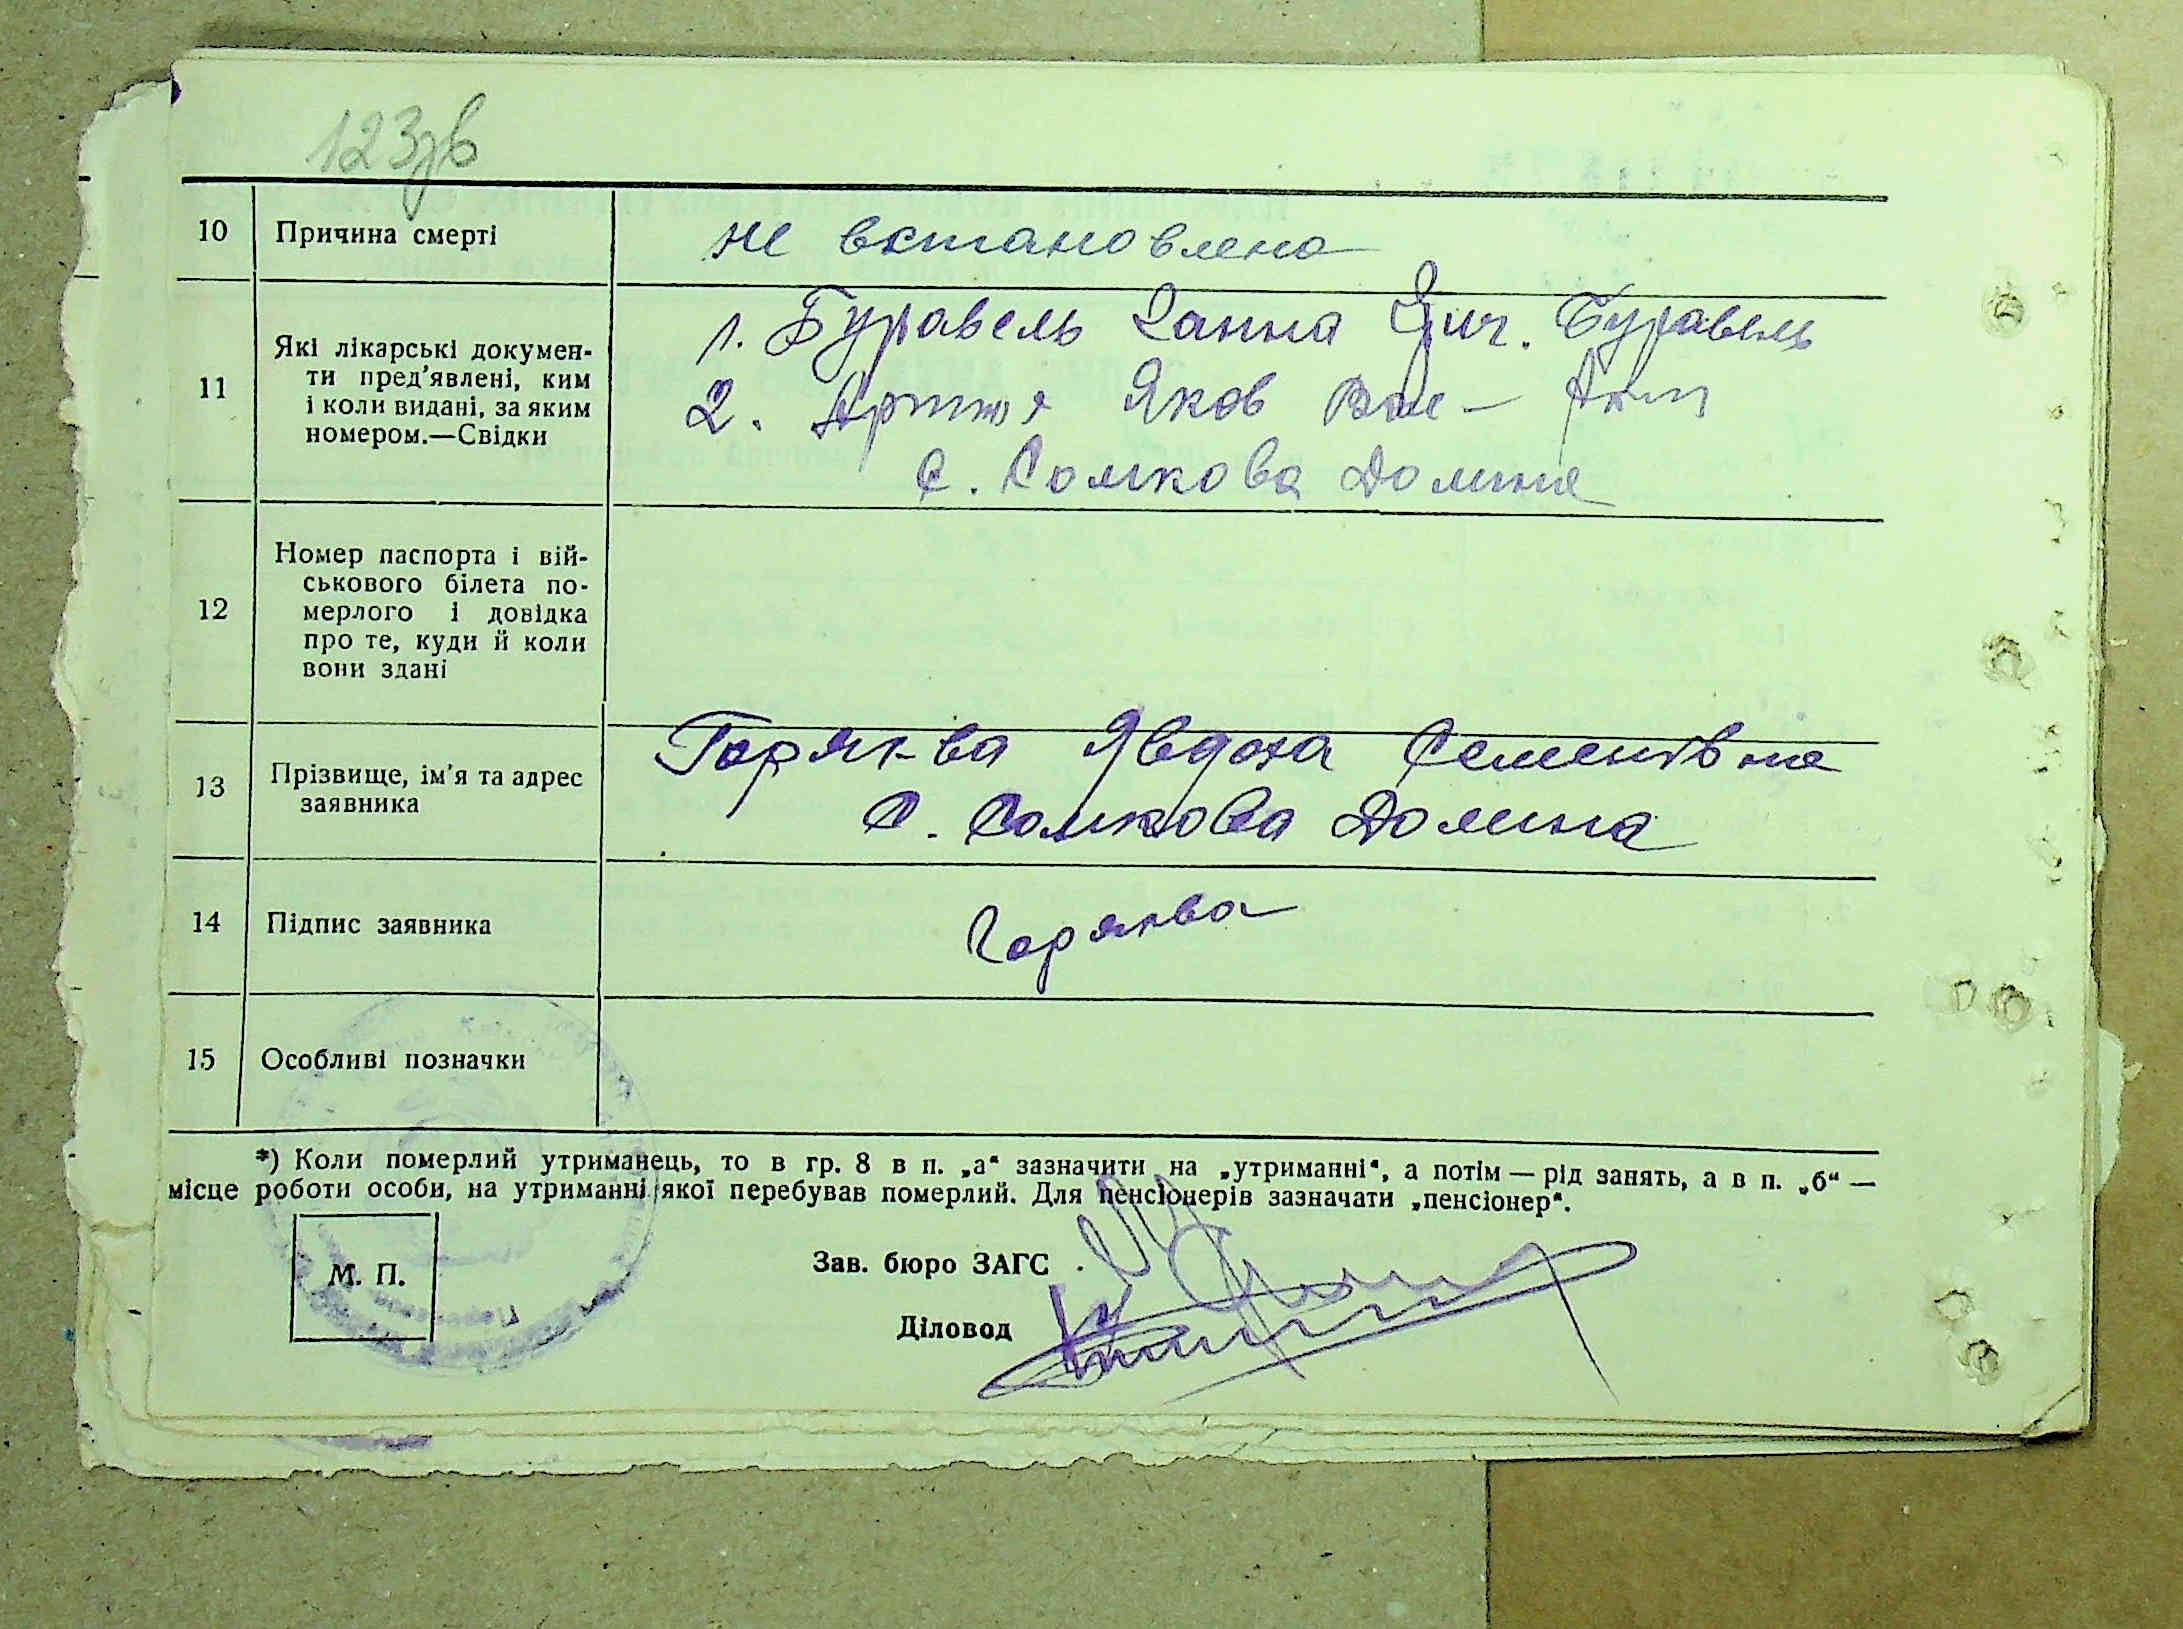 123зв
10 Причина смерті не встановлена
11 Які лікарські докумен-
ти пред'явлені, ким
і коли видані, за яким
номером.—Свідки
1. Буравель Ганна Буравель
2. Яков
с. Сомкова Долина
12 Номер паспорта і вій-
ськового білета по-
мерлого і довідка
про те, куди й коли
вони здані
13 Прізвище, ім'я та адрес
заявника
Горяква Явдоха Семенівна
С. Сомкова Долина
14 Підпис заявника Горяква
15 Особливі позначки
*) Коли померлий утриманець, то в гр. 8 в п. „а“ зазначити на „утриманні“, а потім — рід занять, а в п. „б“ —
місце роботи особи, на утриманні якої перебував померлий. Для пенсіонерів зазначати „пенсіонер“.
М. П.
Зав. бюро ЗАГС
Діловод